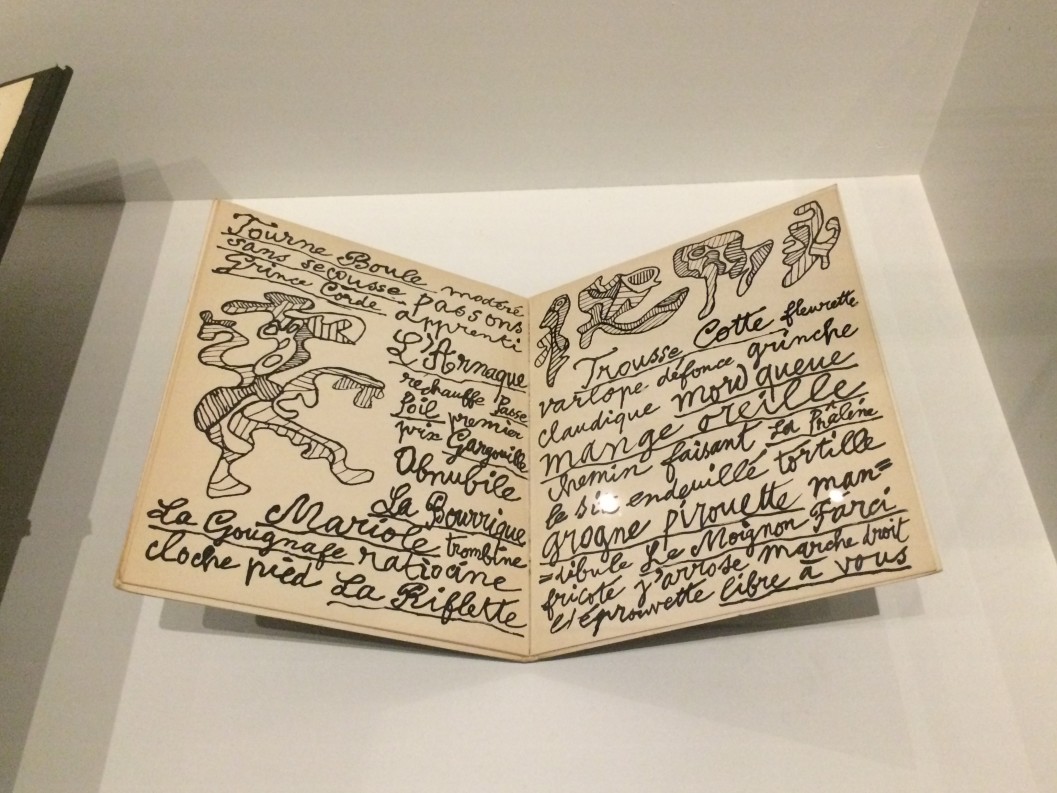 Tourne Boule modéré
sans secousse Passons
Grince Corde apprenti
L'Arnaque
rechauffe Passe
Poil premier
prix Gargouille
Obnubile
La Bourrique
Mariole trombine
La Gougnafe ratiocine
cloche pied La Riflette
Trousse Cotte fleurette
varlope défonce grinche
claudique mord queue
mange oreille
chemin faisant La Phalène
le six endeuillé tortille
grogne pirouette man=
=dibule Le Moignon Farci
fricote j'arrose marche droit
l'éprouvette libre à vous